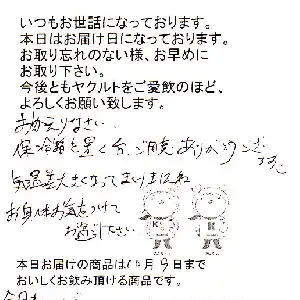 いつもお世話になっております。
本日はお届け日になっております。
お取り忘れのない様、お早めに
お取り下さい。
今後ともヤクルトをご愛飲のほど、
よろしくお願い致します。
おかえりなさい
保冷箱を置く台、ご用意ありがとうございます
気温差大きくなってまいりましたね
お身体お気をつけて
お過ごし下さい
K K
本日お届けの商品は 月 日まで
おいしくお飲み頂ける商品です。